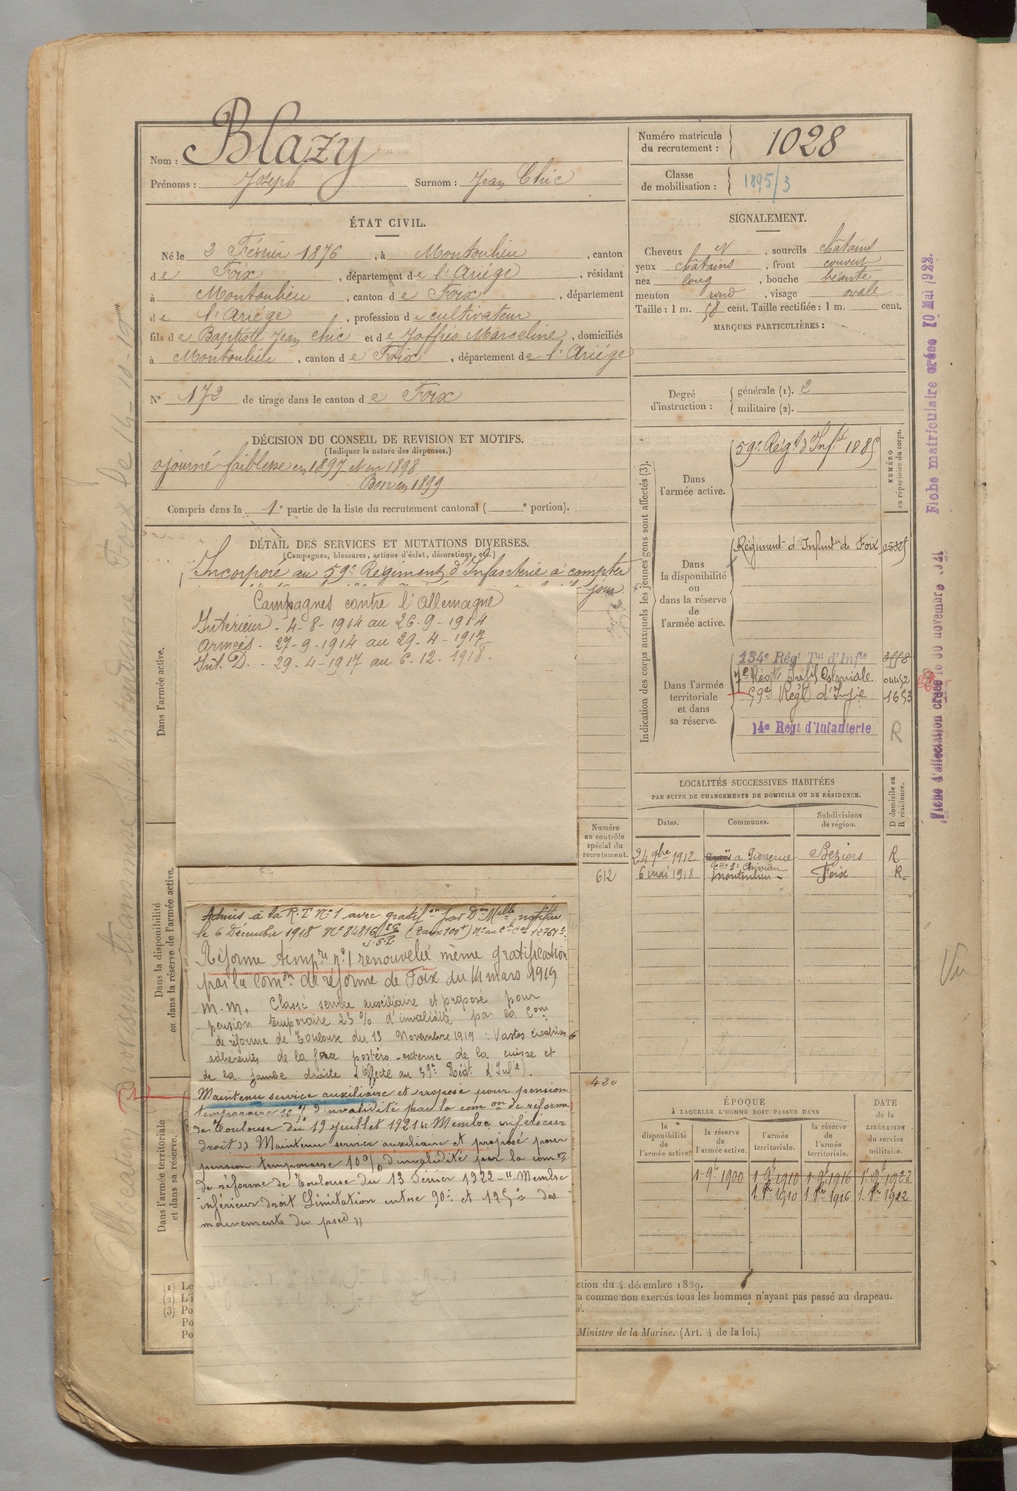 Nom : Blazy
Prénoms : Joseph Surnom : Jean Chic
Numéro matricule du recrutement : 1028
Classe de mobilisation : 1895/3
ÉTAT CIVIL.
Né le 2 Février 1876, à Montoulieu, canton
de Foix, département de l'Ariége, résidant
à Montoulieu, canton de Foix, département
de l'Ariége, profession de cultivateur
fils de Baptiste Jean Chic et de Joffrès Marceline, domiciliés
à Montoulieu, canton de Foix, département de l'Ariége
N° 172 de tirage dans le canton de Foix
SIGNALEMENT.
Cheveux N, sourcils châtains
yeux châtains, front couvert
nez long, bouche béante
menton rond, visage ovale
Taille : 1 m. 58 cent. Taille rectifiée : 1 m. cent.
MARQUES PARTICULIÈRES :
Degré d'instruction : générale (1). 2
militaire (2).
DÉCISION DU CONSEIL DE REVISION ET MOTIFS.
(Indiquer la nature des dispenses.)
ajourné faiblesse en 1897 et en 1898
Bon en 1899
Compris dans la 1e partie de la liste du recrutement cantonal ( e portion).
DÉTAIL DES SERVICES ET MUTATIONS DIVERSES.
(Campagnes, blessures, actions d'éclat, décorations, etc.)
Incorporé au 59e Régiment d'Infanterie à compter
jour
Campagnes contre l'Allemagne
Intérieur - 4-8-1914 au 26-9-1914
Armées - 27-9-1914 au 29-4-1917
Int. D. - 29-4-1917 au 6-12-1918
Dans l'armée active.
Dans la disponibilité ou dans la réserve de l'armée active.
Dans l'armée territoriale et dans sa réserve.
Numéro au contrôle spécial du recrutement.
612
420
Admis à la R.T. N°1 avec
le 6 Décembre 1918 N° 84816
Réforme tempre n°1 renouvelée même gratification
par la Comon de réforme de Foix du 14 mars 1919
M.M. Classé service auxiliaire et proposé pour
pension temporaire 25 % d'invalidité par la Comon
de réforme de Toulouse du 13 Novembre 1919 : Vastes cicatrices
adhérentes de la face postéro-externe de la cuisse et
de la jambe droite (affecté au 59e Régt d'Infie).
Maintenu service auxiliaire et proposé pour pension
temporaire 10 % d'invalidité par la comon de réforme
de Toulouse du 19 Juillet 1921 "Membre inférieur
droit" Maintenu service auxiliaire et proposé pour
pension temporaire 10% d'invalidité par la comon
de réforme de Toulouse du 13 Février 1922 - "Membre
inférieur droit Limitation entre 90° et 125° des
mouvements du pied"
Indication des corps auxquels les jeunes gens sont affectés (3).
NUMÉRO au répertoire du corps.
Dans l'armée active.
59e Régt d'Infie
Dans la disponibilité ou dans la réserve de l'armée active.
Régiment d'Infantrie de Foix
Dans l'armée territoriale et dans sa réserve.
134e Régt Tal d'Infie
Régt Infie Coloniale
59e Régt d'Infie 1653
14e Regt d'Infanterie R
LOCALITÉS SUCCESSIVES HABITÉES
PAR SUITE DE CHANGEMENTS DE DOMICILE OU DE RÉSIDENCE.
Dates. Communes. Subdivisions de région. D domicile ou R résidence.
24 9bre 1912 Béziers R
6 mai 1918 Montoulieu Foix R
ÉPOQUE
À LAQUELLE L'HOMME DOIT PASSER DANS
DATE de la LIBÉRATION du service militaire.
la disponibilité de l'armée active.
la réserve de l'armée active.
l'armée territoriale.
la réserve de l'armée territoriale.
1er 9e 1900 1er 9e 1910 1er 9e 1916 1er 9e 1922
1. 8e 1910 1. 8e 1916 1. 8e 1922
(1) Le
(2) L'i
(3) Po
Po
Po
ction du 4 décembre 1889.
a comme non exercés tous les hommes n'ayant pas passé au drapeau.
Ministre de la Marine. (Art. 4 de la loi.)
Fiche matriculaire créée 10 Mai 1922.
Fiche d'affectation créée le 30 novembre 1921
Vu